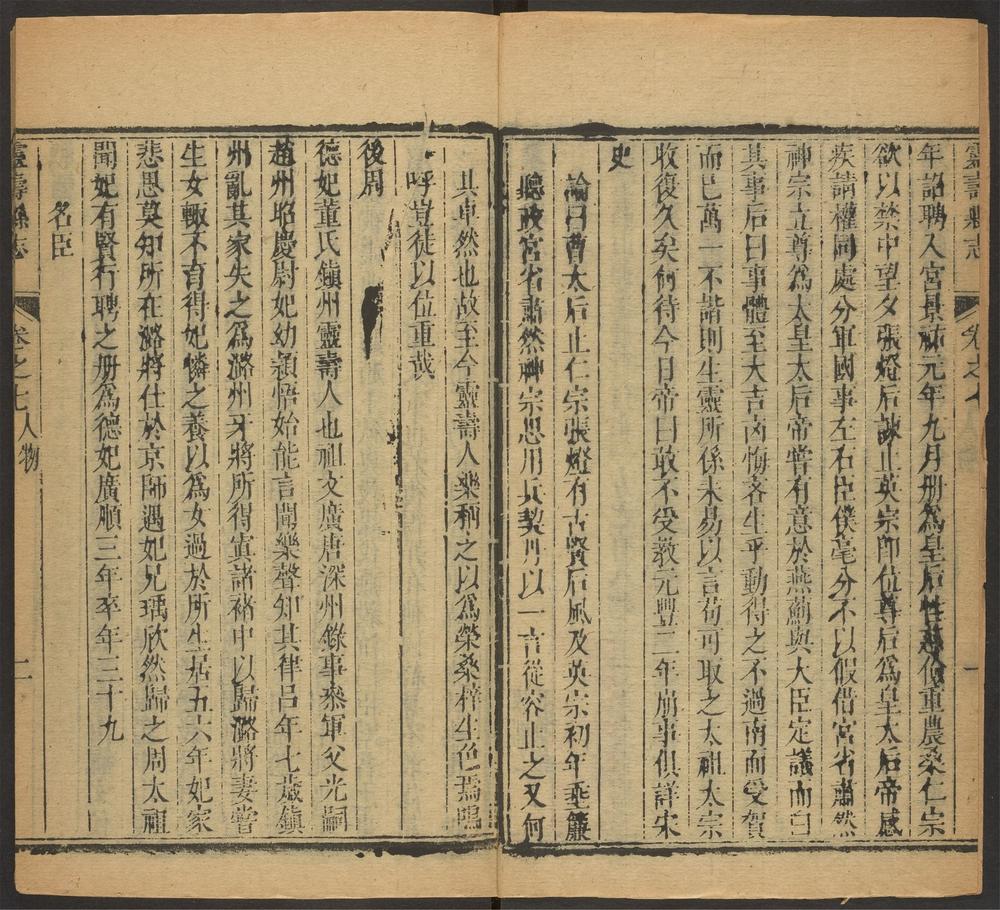 靈壽縣志
卷之七
一
年詔聘入宮景祐元年九月册爲皇后性慈儉重農桑仁宗
欲以禁中望夕張燈后諫止英宗卽位尊后爲皇太后帝感
疾請權同處分軍國事左右臣僕毫分不以假借宮省肅然
神宗立尊爲太皇太后帝嘗有意於燕薊與大臣定議而白
其事后曰事體至大吉凶悔吝生乎動得之不過南面受賀
而已萬一不諧則生靈所係未易以言苟可取之太祖太宗
收復久矣何待今日帝曰敢不受敎元豐二年崩事俱詳宋
史
論曰曹太后止仁宗張燈有古賢后風及英宗初年垂簾
聽政宮省肅然神宗思用兵契丹以一言從容止之又何
其卓然也故至今靈壽人樂稱之以爲榮桑梓生色焉嗚
呼豈徒以位重哉
後周
德妃董氏鎭州靈壽人也祖文廣唐深州錄事參軍父光嗣
趙州昭慶尉妃幼穎悟始能言聞樂聲知其律呂年七歲鎭
州亂其家失之爲潞州牙將所得寘諸褚中以歸潞將妻嘗
生女輒不育得妃憐之養以爲女過於所生居五六年妃家
悲思莫知所在潞將仕於京師遇妃兄瑀欣然歸之周太祖
聞妃有賢行聘之册爲德妃廣順三年卒年三十九
名臣
靈壽縣志
卷之七人物
二